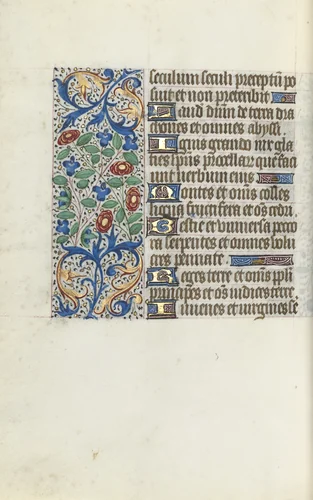 seculum seculi preceptū po
suit et non preteribit
Laud dūm de terra dra
chones et omnes abyssi.
Ignis grando nix gla
cies sp̄us procellar̄ que faci
unt verbum eius
Montes et om̄s colles
ligna fructifera et oēs cedri.
Bestie et universa peco
ra serpentes et omnes volu
cres pennate.
Reges terre et om̄s pp̄li
principes et oēs iudices terre
Iuvenes et virgines se